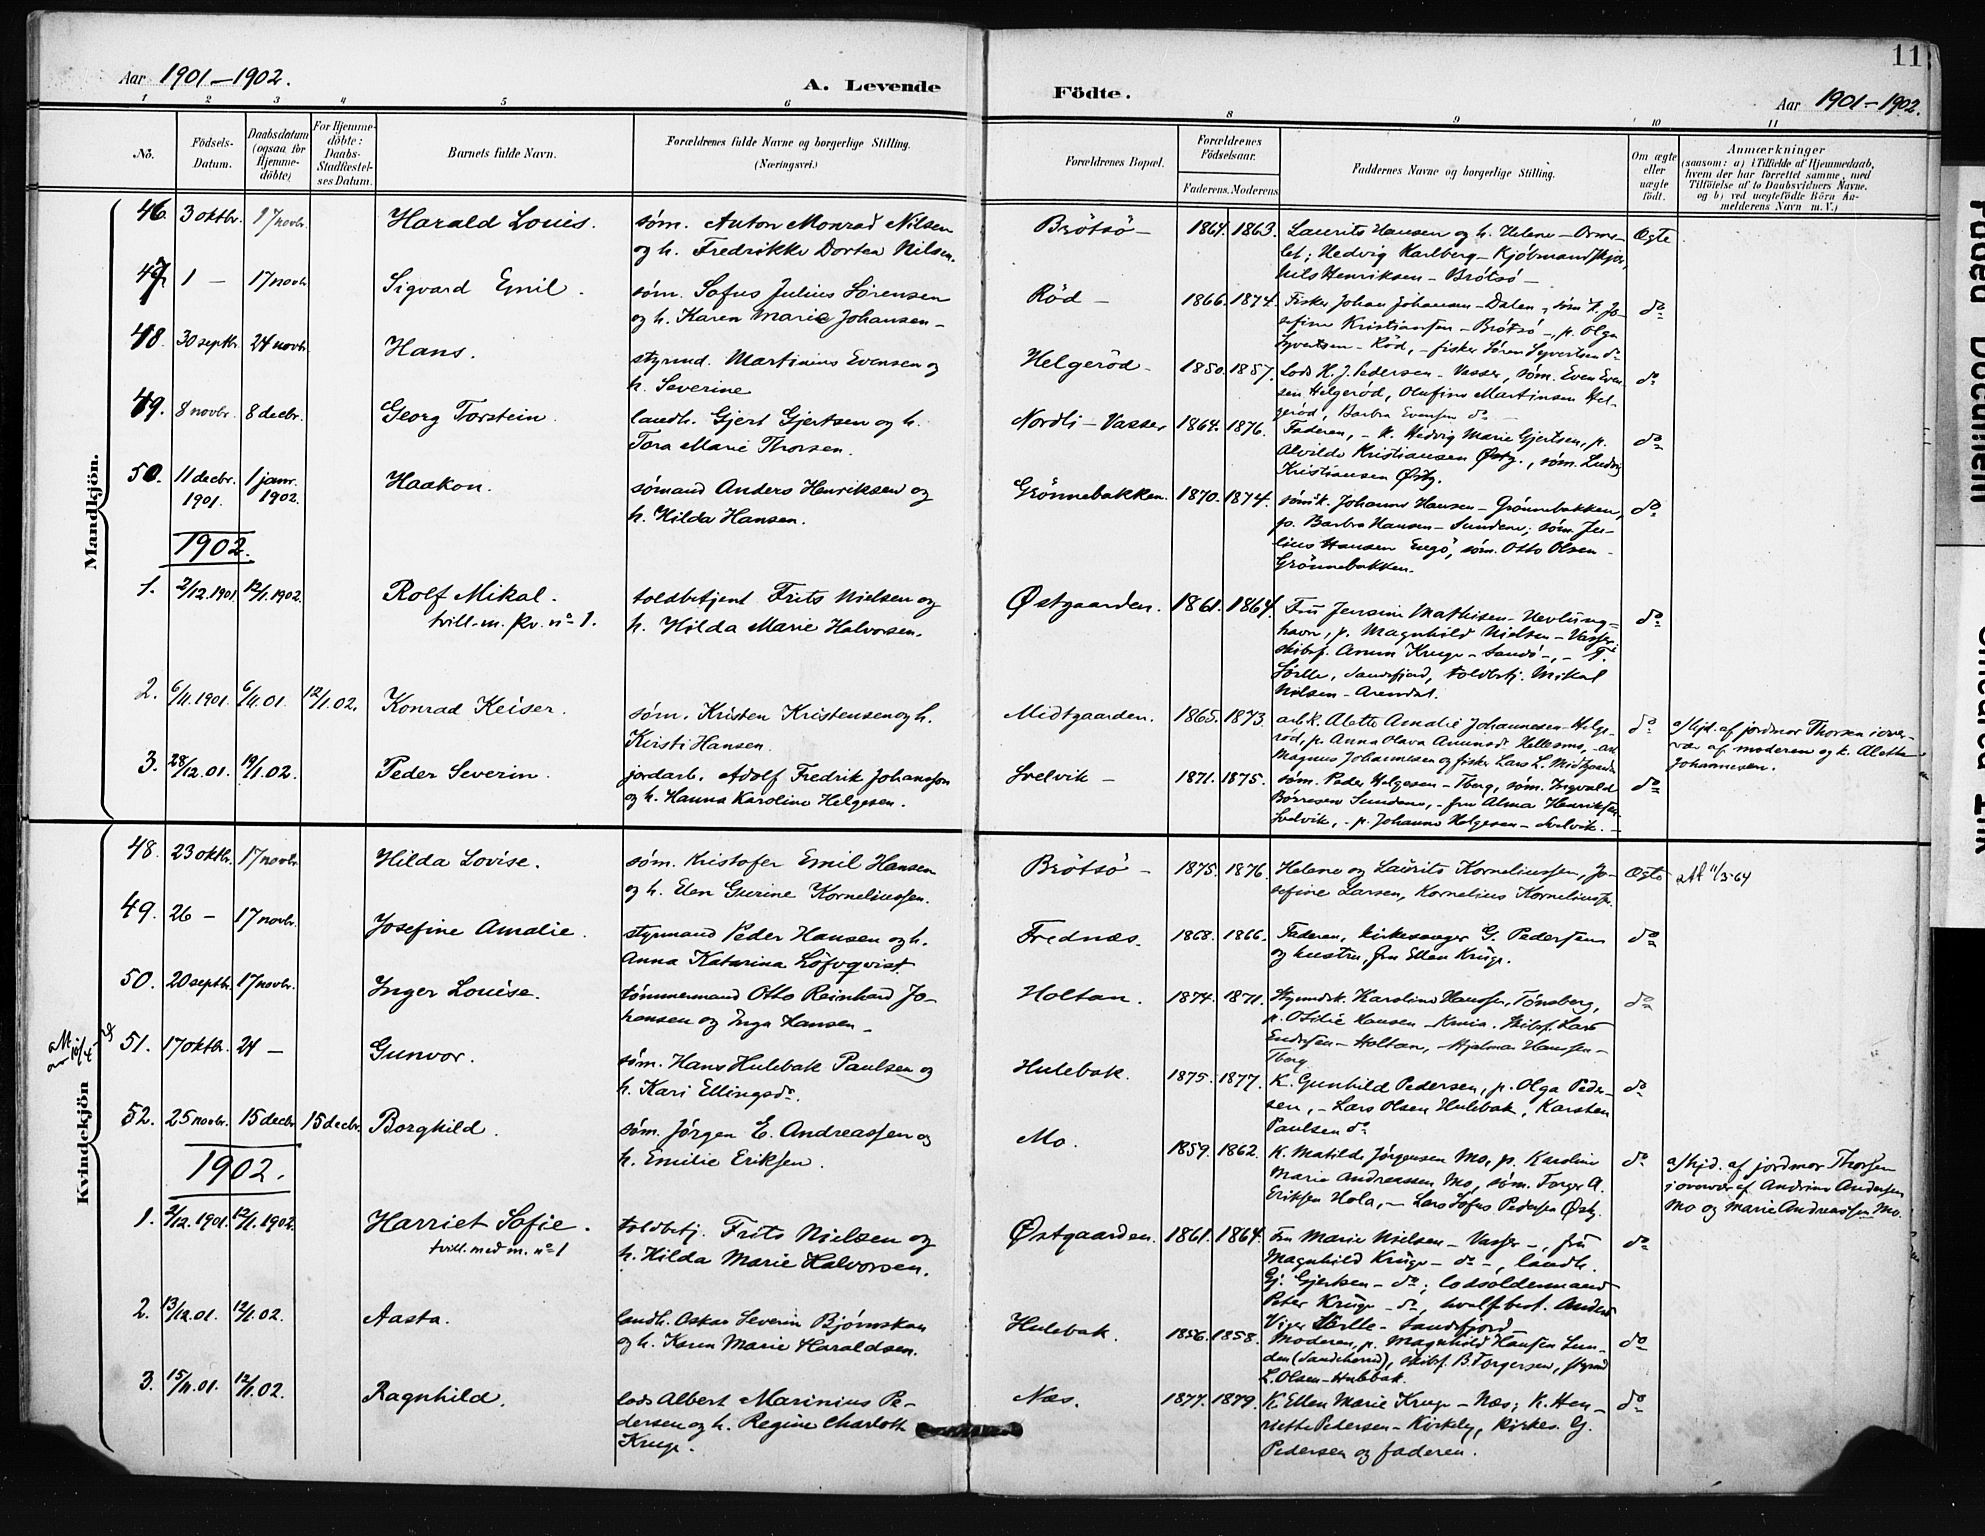 Aar 1901–1902.
A. Levende
Födte.
11
Aar 1901–1902.
1 2 3 4 5 6 8 9 10 11
No.
Födsels-
Datum.
Daabsdatum
(ogsaa for
Hjemme-
döbte)
For Hjemme-
döbte:
Daabs-
Stadfæstel-
ses Datum.
Barnets fulde Navn.
Forældrenes fulde Navne og borgerlige Stilling.
(Næringsvei.)
Forældrenes Bopæl.
Forældrenes
Födselsaar.
Faderens. Moderens.
Faddernes Navne og borgerlige Stilling.
Om ægte
eller
uægte
födt.
Anmærkninger
(saasom: a) i Tilfælde af Hjemmedaab,
hvem der har forrettet samme, med
Tilföielse af to Daabsvidners Navne.
og b) ved uægtefödte Börn An-
melderens Navn m. V.)
Mandkjön.
46. 3 oktbr. 17 novbr. Harald Louis. søm. Anton Monrad Nilsen
og h. Fredrikke Dortea Nilsen.
Brötsö – 1864. 1863. Laurits Hansen og h. Helene – Orme-
let; Hedvig Karlberg – Kjöbmandskjær,
Nils Henriksen – Brötsö –
Ægte
47. 1 – 17 novbr. Sigvard Emil. søm. Sofus Julius Sörensen
og h. Karen Marie Johansen –
Röd – 1866. 1874. Fisker Johan Johansen – Dalen, søm.k. Jo-
sefine Kristiansen – Brötsö –, p. Olga
Syvertsen – Röd, – fisker Sören Syvertsen do
do
48. 30 septbr. 24 novbr. Hans. styrmd. Martinius Evensen og
h. Severine
Helgeröd – 1850. 1857. Lods K. J. Pedersen – Vasser, søm. Even Even-
sen Helgeröd, Olufine Martinsen Hel-
geröd, Barbra Evensen do –
do
49. 8 novbr. 8 decbr. Georg Torstein. landh. Gjert Gjertsen og h.
Tora Marie Thorsen.
Nordli – Vasser 1864. 1876. Faderen, – k. Hedvig Marie Gjertsen, p.
Alvilde Kristiansen Østg., søm. Ludvig
Kristiansen Østg.
do
50. 11 decbr. 1 janr. Haakon. sømand Anders Henriksen og
1901. 1902. h. Hilda Hansen.
Grönnebakken. 1870. 1874. søm.k. Johanne Hansen – Grönnebakken,
p. Barbra Hansen – Sundene; søm. Ju-
lius Hansen Engö, søm. Otto Olsen –
Grönnebakken.
do
1902.
1. 2/12.1901. 12/1.1902. Rolf Mikal. toldbetjent Frits Nielsen og
tvill. m. kv. no 1. h. Hilda Marie Halvorsen.
Østgaarden. 1861. 1864. Fru Jensine Mathisen – Nevlung-
havn, p. Magnhild Nielsen – Vasser,
skibsf. Anun Kruge – Sandö –, – T.
Sörlle, Sandefjord, toldbetj. Mikal
Nilsen – Arendal.
do
2. 6/11.1901. 6/11.01. 12/1.02. Konrad Keiser. søm. Kristen Kristensen og h.
Kirsti Hansen.
Midtgaarden. 1865. 1873. arb.k. Alette Amalie Johannesen – Helge-
röd, p. Anna Olava Amunds. Hellesmo, – arb.
Magnus Johannesen og fisker Lars L. Midtgaarden
do
a/ hjd. af jordmor Thorsen i over-
vær af moderen og k. Alette
Johannesen.
3. 28/12.01. 19/1.02. Peder Severin. jordarb. Adolf Fredrik Johansson
og h. Hanna Karoline Helgesen.
Svelvik – 1871. 1875. søm. Peder Helgesen – Tberg, søm. Ingvald
Börresen Sundene, – fru Alma Henriksen
Svelvik, – p. Johanne Helgesen – Svelvik. –
do
Kvindekjön
48. 23 oktbr. 17 novbr. Hilda Lovise. søm. Kristofer Emil Hansen
og h. Elen Gurine Korneliussen.
Brötsö – 1875. 1876. Helene og Laurits Korneliussen, Jo-
sefine Larsen, Kornelius Korneliuss.
Ægte att 11/3-64
49. 26 – 17 novbr. Josefine Amalie. styrmand Peder Hansen og h.
Anna Katarina Löfvqvist.
Frednæs. 1868. 1866. Faderen, kirkesanger G. Pedersen
og hustru, fru Ellen Kruge.
do
50. 20 septbr. 17 novbr. Inger Louise. tömmermand Otto Reinhard Jo-
hansen og Inga Hansen –
Holtan. 1874. 1871. Styrmdsk. Karoline Hanssen, Tönsberg,
p. Otilie Hansen – Knia. Skibsf. Lars
Endresen – Holtan, – Hjalmar Hanssen –
Tberg
do
51. 17 oktbr. 24 – Gunvor. søm. Hans Hulebak Paulsen og
h. Kari Ellingsdr.
Hulebak. 1875. 1877. K. Gunhild Pedersen, p. Olga Peder-
sen, – Lars Olsen Hulebak, Karsten
Paulsen do
do
52. 25 novbr. 15 decbr. 15 decbr. Borghild. søm. Jörgen E. Andreassen og
h. Emilie Eriksen.
Mo. 1859. 1862. K. Matilde Jörgensen Mo, p. Karoline
Marie Andreassen Mo, søm. Torger A.
Eriksen Hola, – Lars Sofus Pedersen Østg.
do
a/ hjd. af jordmor Thorsen
i overvær af Andrine Andersen
Mo og Marie Andreassen Mo.
1902.
1. 2/12.1901. 12/1.1902. Harriet Sofie. toldbetj. Frits Nielsen og
tvill. med m. no 1 h. Hilda Marie Halvorsen.
Østgaarden. 1861. 1864. Fru Marie Nielsen – Vasser –, fru
Magnhild Kruge – do –, landh.
Gj. Gjertsen – do; lodsoldermand
Peter Kruge – do, hvalfbest. Anders
Viger Sörlle – Sandefjord
do
2. 13/12.01. 12/1.02. Aasta. landh. Oskar Severin Björnskau
og h. Karen Marie Haraldsen.
Hulebak. 1856. 1858. Moderen, p. Magnhild Hansen Sun-
den (Sandeherred), skibsf. B. Torgersen, styrmd
L. Olsen – Hulebak.
do
3. 15/11.01. 12/1.02. Ragnhild. lods Albert Marinius Pe-
dersen og h. Regine Charlotte
Kruge.
Næs. 1877. 1879. K. Ellen Marie Kruge – Næs; K. Hen-
riette Pedersen – Kirkeby, kirkes. G.
Pedersen og faderen.
do
Faded Document